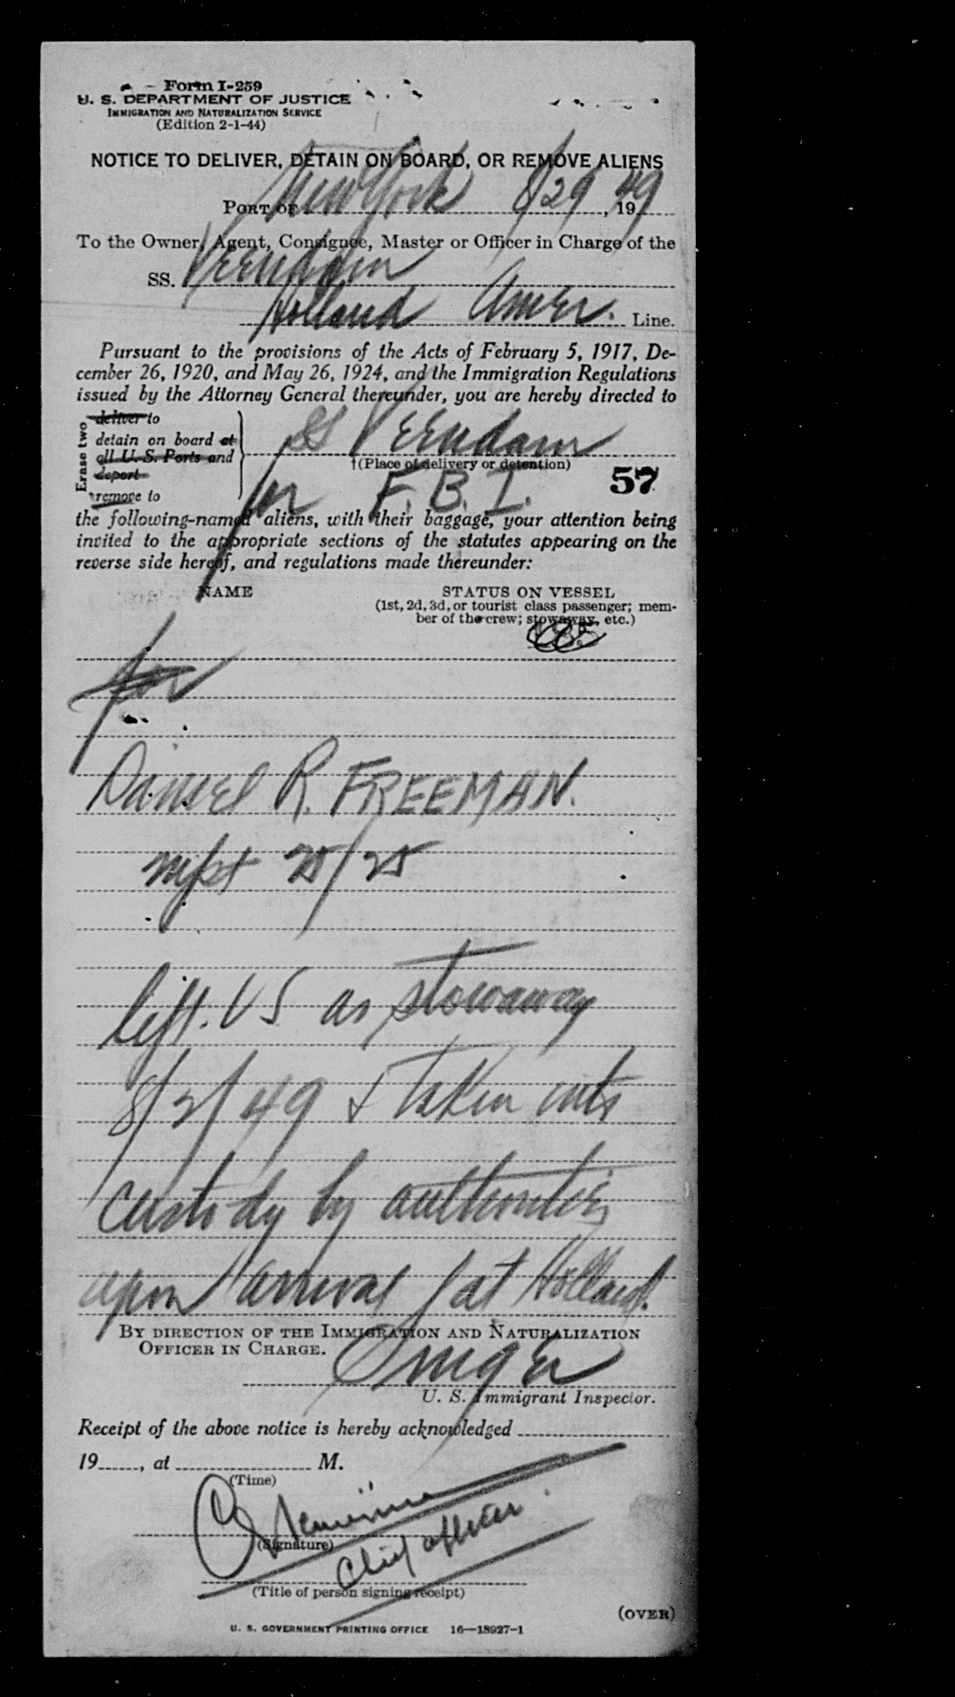 Form I-259
U. S. DEPARTMENT OF JUSTICE
IMMIGRATION AND NATURALIZATION SERVICE
(Edition 2-1-44)
NOTICE TO DELIVER, DETAIN ON BOARD, OR REMOVE ALIENS
PORT OF New York 8/29, 1949
To the Owner, Agent, Consignee, Master or Officer in Charge of the
SS. Veendam
Holland Amer. Line.
Pursuant to the provisions of the Acts of February 5, 1917, De-
cember 26, 1920, and May 26, 1924, and the Immigration Regulations
issued by the Attorney General thereunder, you are hereby directed to
Erase two
deliver to
detain on board at
all U. S. Ports and
deport
remove to
SS Veendam
†(Place of delivery or detention)
for F.B.I.
57
the following-named aliens, with their baggage, your attention being
invited to the appropriate sections of the statutes appearing on the
reverse side hereof, and regulations made thereunder:
NAME
STATUS ON VESSEL
(1st, 2d, 3d, or tourist class passenger; mem-
ber of the crew; stowaway, etc.)
for
Daniel R. FREEMAN.
mfst 25/25
left. US as stowaway
8/2/49 & taken into
custody by authorities
upon arrival at Holland.
BY DIRECTION OF THE IMMIGRATION AND NATURALIZATION
OFFICER IN CHARGE.
Singer
U. S. Immigrant Inspector.
Receipt of the above notice is hereby acknowledged
19, at M.
(Time)
(Signature)
Chief officer
(Title of person signing receipt)
(OVER)
U. S. GOVERNMENT PRINTING OFFICE 16—18927-1